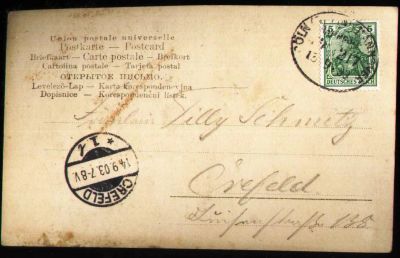 Union postale universelle
Postkarte — Postcard
Briefkaart — Carte postale — Brefkort
Cartolina postale — Tarjeta postal
ОТКРЫТОЕ ПИСЬМО.
Levelező-Lap — Karta korespondencyjna
Dopisnice — Korespondenční lístek.
CÖLN
5
DEUTSCHES
Fräulein Tilly Schmitz
Crefeld.
14.9.03.7-8V.
CREFELD
* 1 z